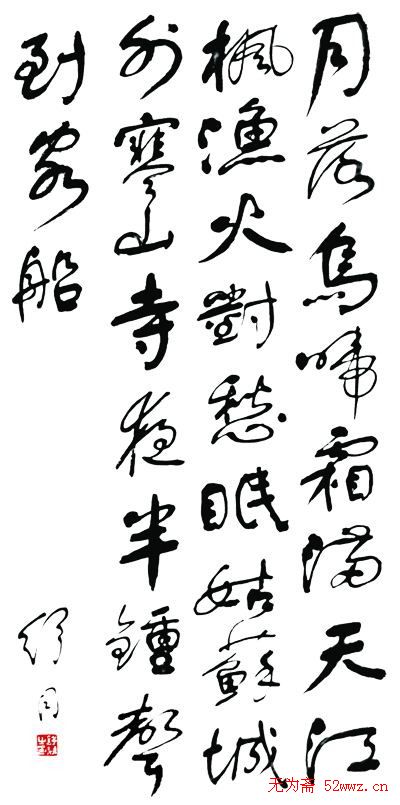 月落烏啼霜滿天江
楓漁火對愁眠姑蘇城
外寒山寺夜半鍾聲
到客船
舒同
无为斋 52wwz.cn